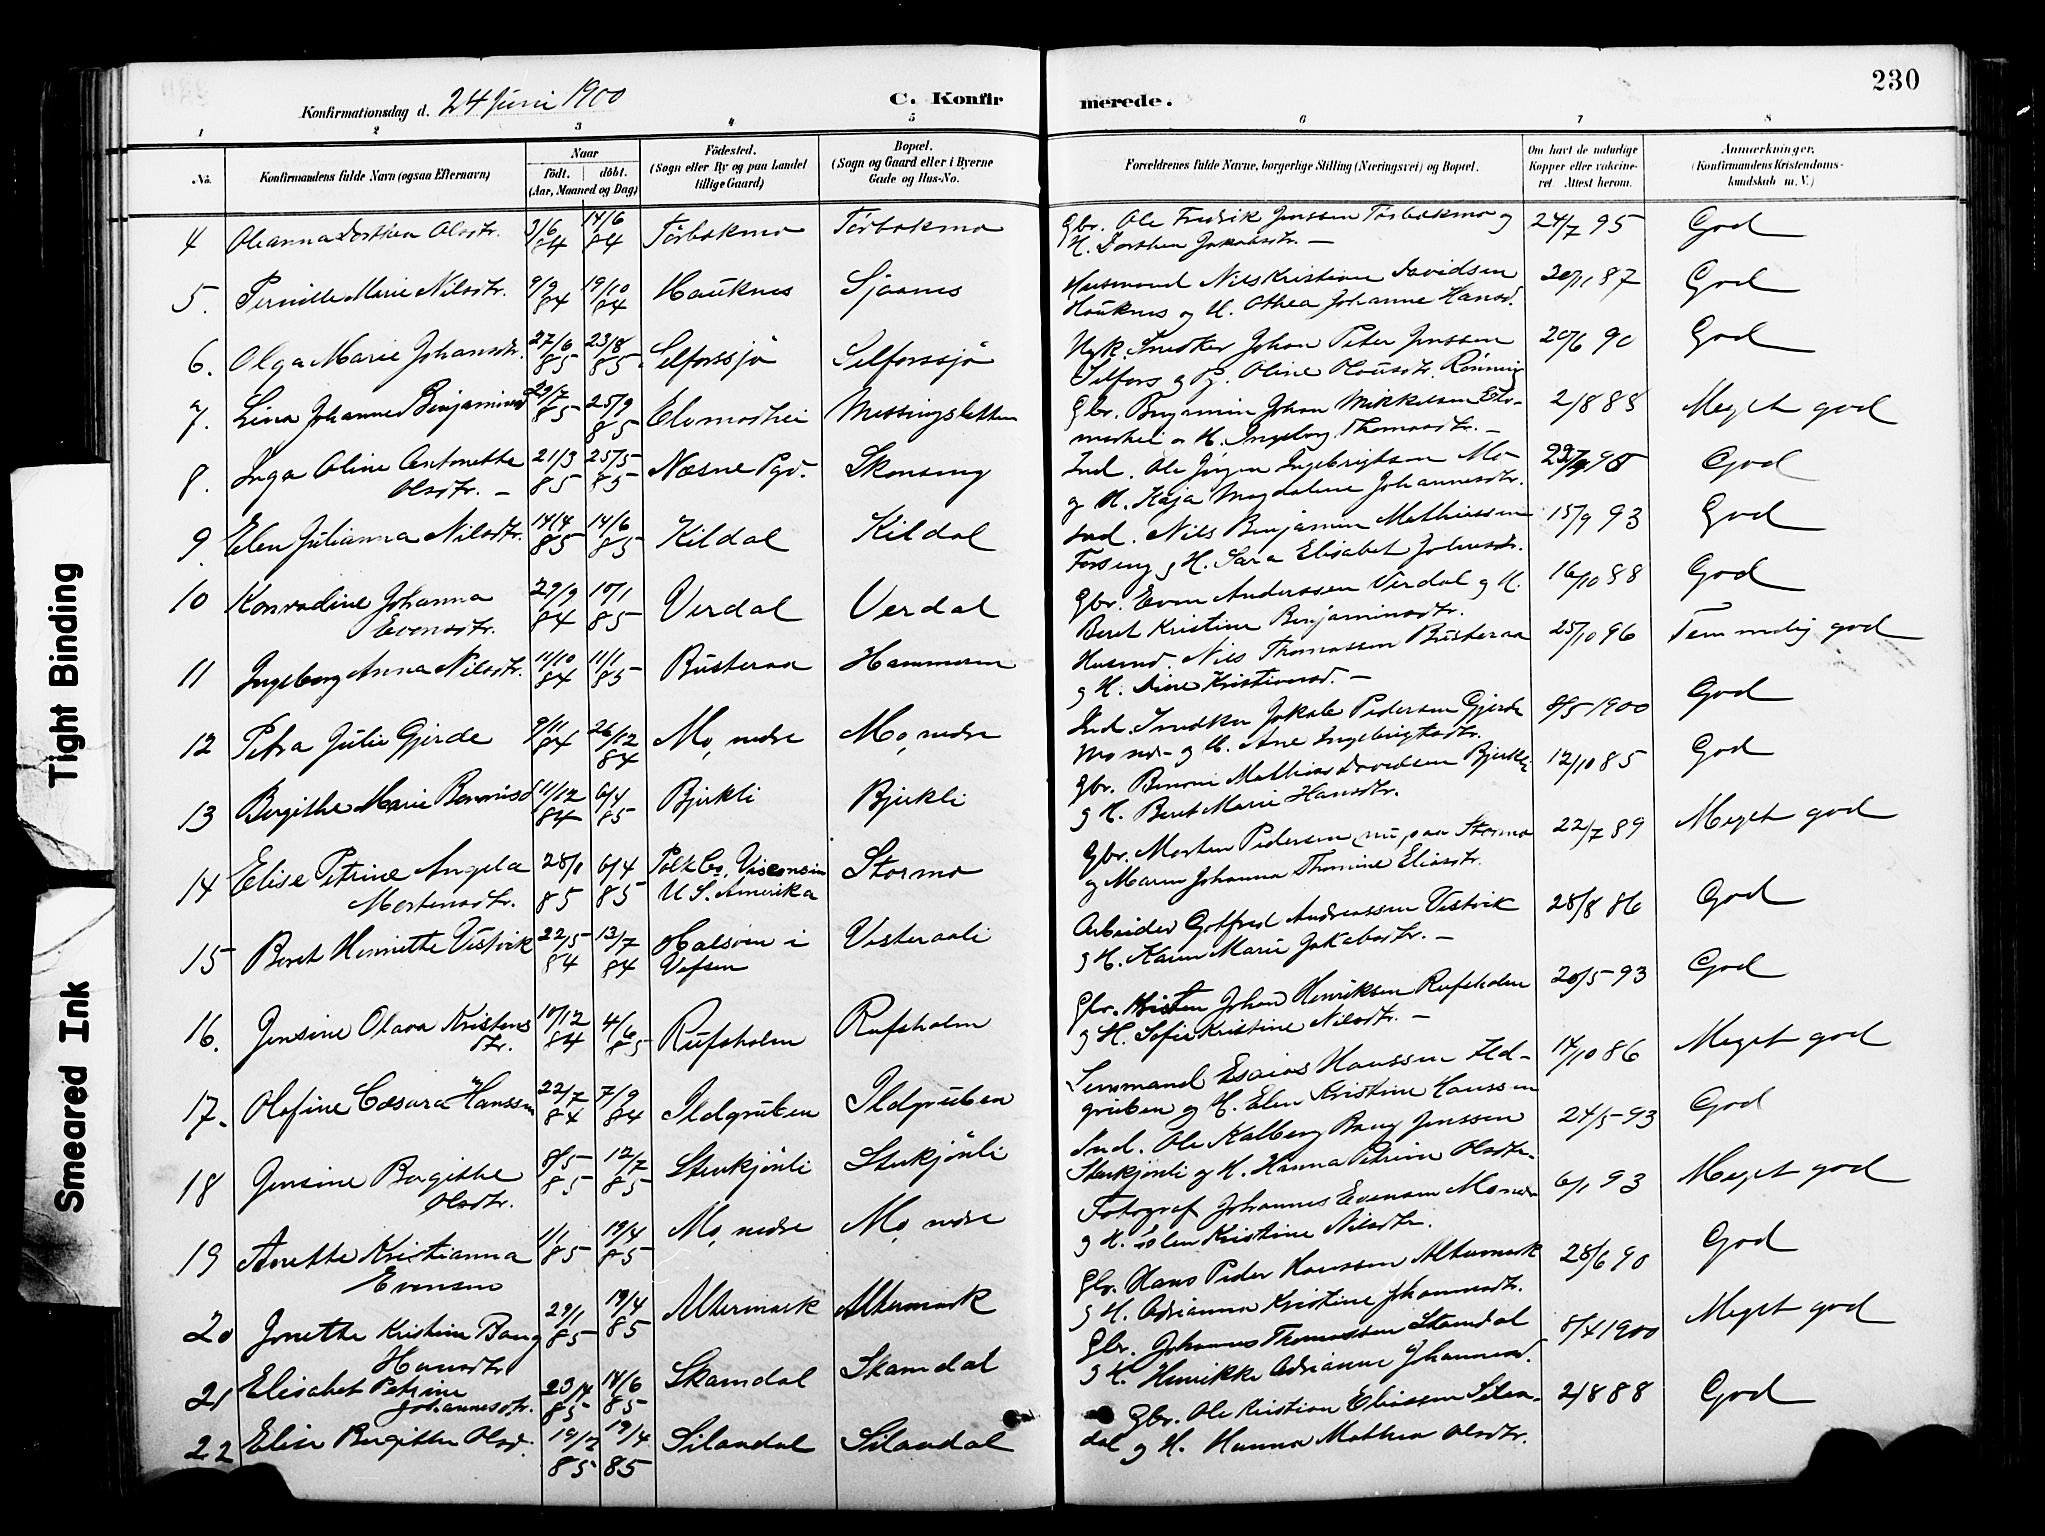 230
Konfirmationsdag d. 24 Juni 1900
C. Konfirmerede.
1 2 3 4 5 6 7 8
No.
Konfirmandens fulde Navn (ogsaa Efternavn)
Naar
födt. döbt.
(Aar, Maaned og Dag)
Födested.
(Sogn eller By og paa Landet
tillige Gaard)
Bopæl.
(Sogn og Gaard eller i Byerne
Gade og Hus-No.
Forældrenes fulde Navne, borgerlige Stilling (Næringsvei) og Bopæl.
Om havt de naturlige
Kopper eller vakcine-
ret. Attest herom.
Anmærkninger.
(Konfirmandens Kristendoms-
kundskab m. V.)
4 Oleanna Dorthea Olsdtr. 3/6 84 14/6 84 Törbakmo Törbakmo Gbr. Ole Fredrik Jenssen Törbakmo og 24/7 95 God
H. Dorthea Jakobsdtr. —
5. Pernille Marie Nilsdtr. 9/9 84 19/10 84 Hauknes Sjaanes Husmand Nils Kristian Davidsen 20/1 87 God
Hauknes og H. Othea Johanne Hansd.
6. Olga Marie Johansdtr. 27/6 85 23/8 85 Selforssjö Selforssjö Ugk. Snedker Johan Peter Jenssen 20/6 90 God
Selfors og Pg. Oline Olausdtr. Rönning
7. Lina Johanne Benjaminsd 29/7 85 25/9 85 Elvmoshei Messingsletten Gbr. Benjamin Johan Mikkelsen 2/8 85 Meget god
H. Ingeborg Thomasdtr. —
8. Inga Oline Antonette 21/3 85 25/5 85 Næsne Pgd. Skonseng Ind. Ole Jörgen Ingebrigtsen Mo God
Olsdtr. — og H. Kaja Magdalene Johannesdtr.
9. Elen Julianna Nilsdtr. 14/4 85 14/6 85 Kildal Kildal Ind. Nils Benjamin Mathiassen 15/9 93 God
Forseng og H. Sara Elisabet Johnsdtr.
10 Konradine Johanna 29/9 84 10/1 85 Verdal Verdal Gbr. Even Anderssen Verdal og H. 16/10 88 God
Evensdtr. Beret Kristine Benjaminsdtr.
11 Ingeborg Anna Nilsdtr. 11/10 84 11/1 85 Busteraa Hammeren Husmd. Nils Thomassen Busteraa 25/10 96 Temmelig god
og H. Dine Kristiansd. —
12 Petra Julie Gjerde 9/11 84 26/12 84 Mo, nedre Mo, nedre Ind. Snedker Jakob Pedersen Gjerde 8/5 1900 God
Mo ndr. og H. Ane Ingebrigtsdtr.
13 Bergithe Marie Benonisd 11/12 84 6/4 85 Bjerkli Bjerkli Gbr. Benoni Mathias Davidsen Bjerkli 12/10 85 God
og H. Beret Marie Hansdtr.
14 Elise Petrine Angela 28/1 85 6/4 85 Polk Co, Visconsin Stormo Gbr. Morten Pedersen, nu paa Stormo 22/7 89 Meget god
Mortensdtr. U.S. Amerika og Maren Johanna Thomine Eliasdtr.
15 Beret Henriette Vestvik 22/5 84 13/7 84 Halsöen i Vesteraali Arbeider Gotfred Andreassen Vestvik 28/8 86 God
Vefsen og H. Karen Marie Jakobsdtr. —
16. Jensine Olava Kristens 10/12 84 4/6 85 Rufsholm Rufsholm Gbr. Kristen Johan Henriksen Rufsholm 20/5-93 God
dtr. og H. Sofie Kristine Nilsdtr. —
17. Olefine Cæsara Hanssen 22/7 84 7/9 84 Ildgruben Ildgruben Lensmand Esaias Hanssen Ild- 14/10 86 Meget god
gruben og H. Elen Kristine Hanssen
18 Jensine Bergithe 8/5 85 12/7 85 Stenkjönli Stenkjönli Ind. Ole Kalberg Bang Jenssen 24/5-93 God
Olsdtr. Stenkjönli og H. Hanna Petrine Olsdtr.
19 Anette Kristianna 1/1 85 19/4 85 Mo, nedre Mo, nedre Fotograf Johannes Evensen Mo ndr. 6/1 93 Meget god
Evensen og H. Elen Kristine Nilsdtr.
20 Jonette Kristine Bang 29/1 85 19/4 85 Altermark Altermark Gbr. Hans Peder Hanssen Altermark 28/6 90 God
Hansdtr og H. Adrianna Kristine Johannesdtr.
21 Elisabet Petrine 23/4 85 14/6 85 Skamdal Skamdal Gbr. Johannes Thomassen Skamdal 8/4 1900 Meget god
Johannesdtr. og H. Henrikke Adrianne Johannesd.
22 Elise Bergitte Olsd. 19/2 85 19/4 85 Silandal Silandal Gbr. Ole Kristian Eliassen Silan- 2/8 88 God
dal og H. Hanna Mathea Olsdtr.
Tight Binding
Smeared Ink